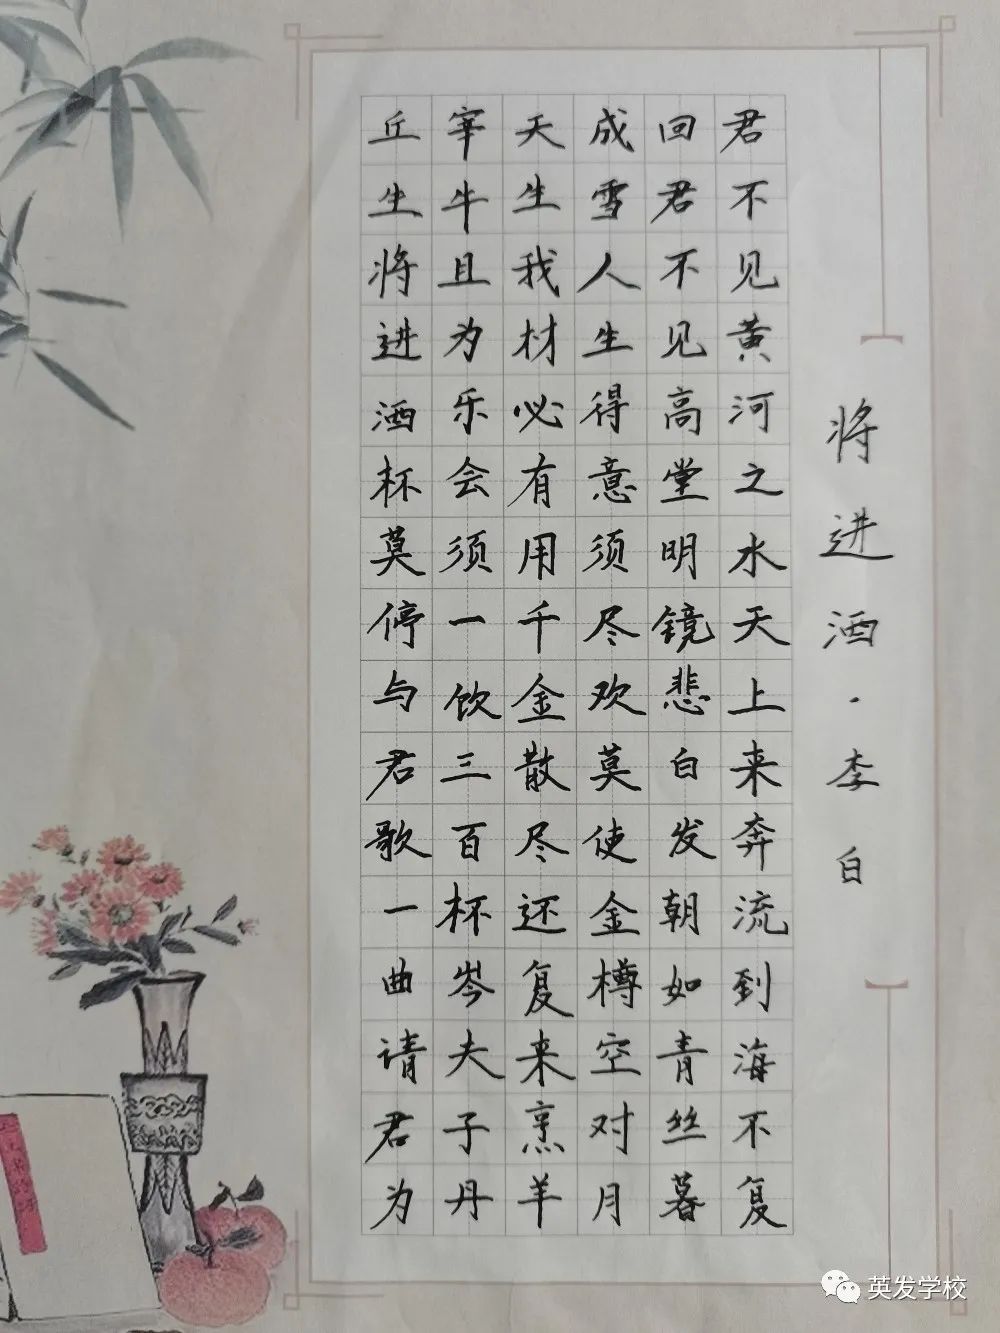 将进酒·李白
君不见黄河之水天上来奔流到海不复
回君不见高堂明镜悲白发朝如青丝暮
成雪人生得意须尽欢莫使金樽空对月
天生我材必有用千金散尽还复来烹羊
宰牛且为乐会须一饮三百杯岑夫子丹
丘生将进酒杯莫停与君歌一曲请君为
英发学校